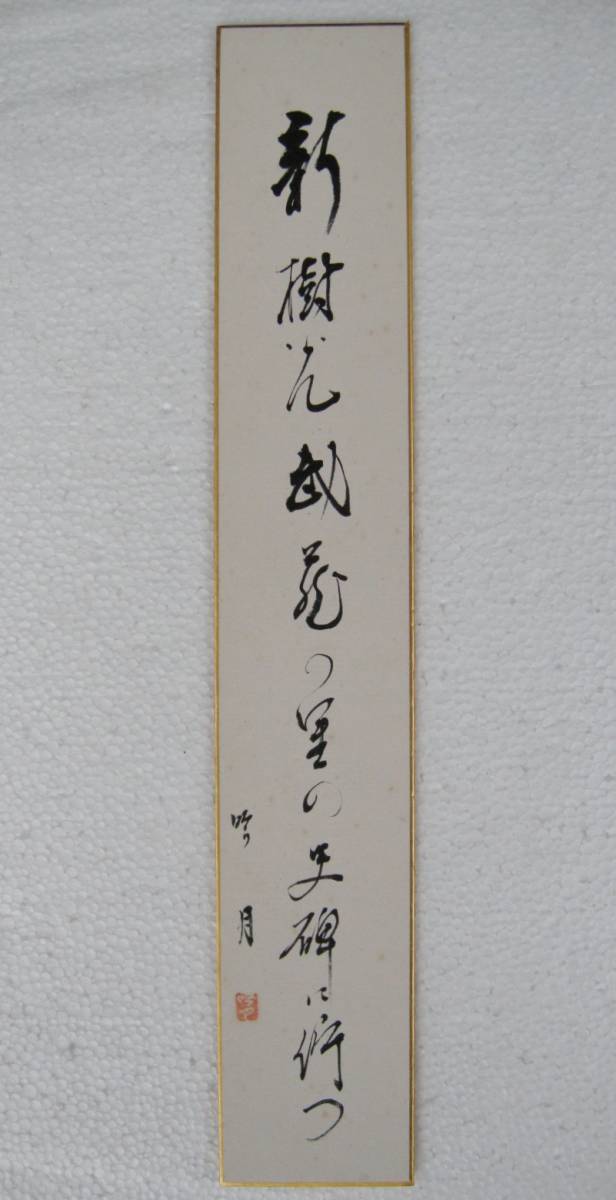 新樹光武蔵の里の史碑に佇つ
吟月